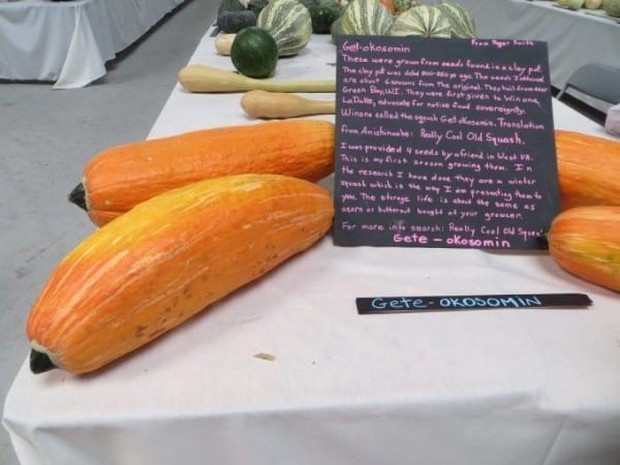 Get-okosomin From Roger Smith
These were grown from seeds found in a clay pot.
The clay pot was dated 800-850 yr ago. The seeds I obtained
are about 6 seasons from the original. They hail from near
Green Bay, WI. They were first given to Winona
LaDuke, advocate for native food sovereignty.
Winona called the squash Get okosomin. Translation
from Anishinaabe: Really Cool Old Squash.
I was provided 4 seeds by a friend in West VA.
This is my first season growing them. In
the research I have done they are a winter
squash which is the way I am presenting them to
you. The storage life is about the same as
acorn or butternut bought at your grocer.
For more info search: Really Cool Old Squash
Gete - okosomin
Gete-OKOSOMIN